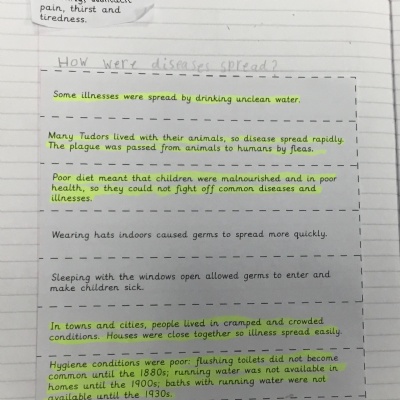 pain, thirst and
tiredness.
How were diseases spread?
Some illnesses were spread by drinking unclean water.
Many Tudors lived with their animals, so disease spread rapidly.
The plague was passed from animals to humans by fleas.
Poor diet meant that children were malnourished and in poor
health, so they could not fight off common diseases and
illnesses.
Wearing hats indoors caused germs to spread more quickly.
Sleeping with the windows open allowed germs to enter and
make children sick.
In towns and cities, people lived in cramped and crowded
conditions. Houses were close together so illness spread easily.
Hygiene conditions were poor: flushing toilets did not become
common until the 1880s; running water was not available in
homes until the 1900s; baths with running water were not
available until the 1930s.